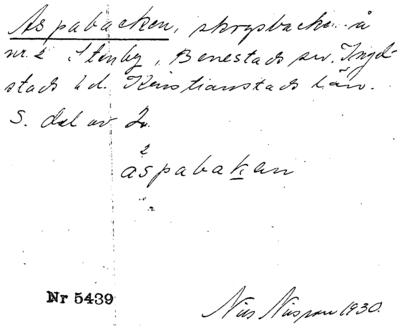 Aspabacken, skogsbacke å
nr 2 Stenby, Benestads sn. Ingel-
stads hd. Kristianstads län.
S. del av
2
aspabakan
Nr 5439
Nils Nilsson 1930.